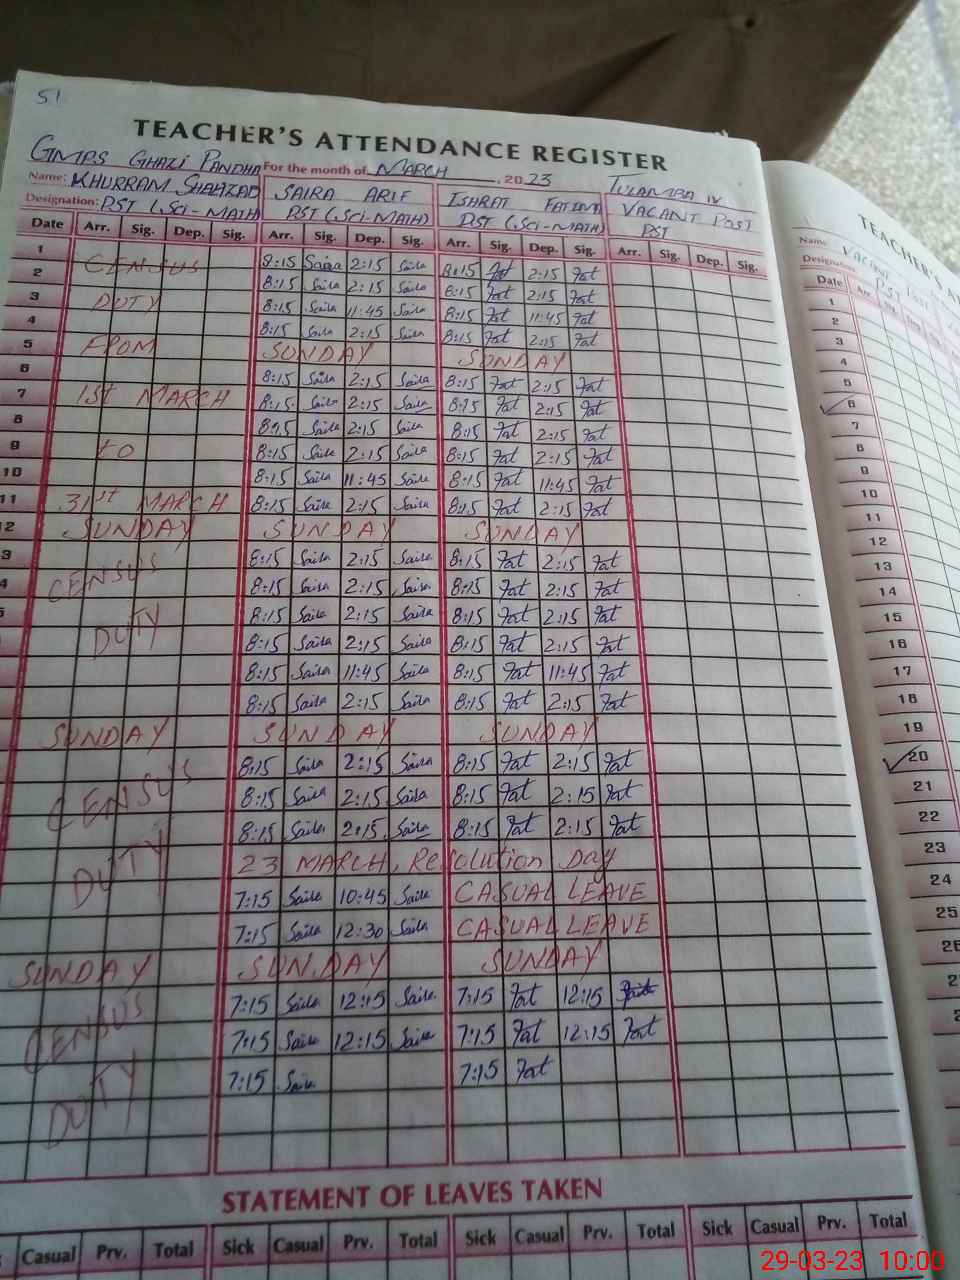 51
TEACHER'S ATTENDANCE REGISTER
GMPS GHAZI PANDHA For the month of MARCH, 2023 TULAMBA IV
Name: KHURRAM SHAHZAD SAIRA ARIF ISHRAT FATIMA VACANT POST
Designation: PST (Sci-MATH) PST (Sci-MATH) PST (Sci-MATH) PST
Date Arr. Sig. Dep. Sig. Arr. Sig. Dep. Sig. Arr. Sig. Dep. Sig. Arr. Sig. Dep. Sig.
1 CENSUS 8:15 Saira 2:15 Saira 8:15 Fat 2:15 Fat
2 8:15 Saira 2:15 Saira 8:15 Fat 2:15 Fat
3 DUTY 8:15 Saira 11:45 Saira 8:15 Fat 11:45 Fat
4 8:15 Saira 2:15 Saira 8:15 Fat 2:15 Fat
5 FROM SUNDAY SUNDAY
6 8:15 Saira 2:15 Saira 8:15 Fat 2:15 Fat
7 1st MARCH 8:15 Saira 2:15 Saira 8:15 Fat 2:15 Fat
8 8:15 Saira 2:15 Saira 8:15 Fat 2:15 Fat
9 to 8:15 Saira 2:15 Saira 8:15 Fat 2:15 Fat
10 8:15 Saira 11:45 Saira 8:15 Fat 11:45 Fat
11 31st MARCH 8:15 Saira 2:15 Saira 8:15 Fat 2:15 Fat
12 SUNDAY SUNDAY SUNDAY
3 CENSUS 8:15 Saira 2:15 Saira 8:15 Fat 2:15 Fat
4 8:15 Saira 2:15 Saira 8:15 Fat 2:15 Fat
5 DUTY 8:15 Saira 2:15 Saira 8:15 Fat 2:15 Fat
8:15 Saira 2:15 Saira 8:15 Fat 2:15 Fat
8:15 Saira 11:45 Saira 8:15 Fat 11:45 Fat
8:15 Saira 2:15 Saira 8:15 Fat 2:15 Fat
SUNDAY SUNDAY SUNDAY
CENSUS 8:15 Saira 2:15 Saira 8:15 Fat 2:15 Fat
8:15 Saira 2:15 Saira 8:15 Fat 2:15 Fat
8:15 Saira 2:15 Saira 8:15 Fat 2:15 Fat
DUTY 23 MARCH, Resolution Day
7:15 Saira 10:45 Saira CASUAL LEAVE
7:15 Saira 12:30 Saira CASUAL LEAVE
SUNDAY SUNDAY SUNDAY
CENSUS 7:15 Saira 12:15 Saira 7:15 Fat 12:15
7:15 Saira 12:15 Saira 7:15 Fat 12:15 Fat
DUTY 7:15 Saira 7:15 Fat
STATEMENT OF LEAVES TAKEN
Casual Prv. Total Sick Casual Prv. Total Sick Casual Prv. Total Sick Casual Prv. Total
TEACHER'S
Name Vacant Post
Designation: PST
Date Arr
1
2
3
4
5
6
7
8
9
10
11
12
13
14
15
16
17
18
19
20
21
22
23
24
25
26
2
2
29-03-23 10:00